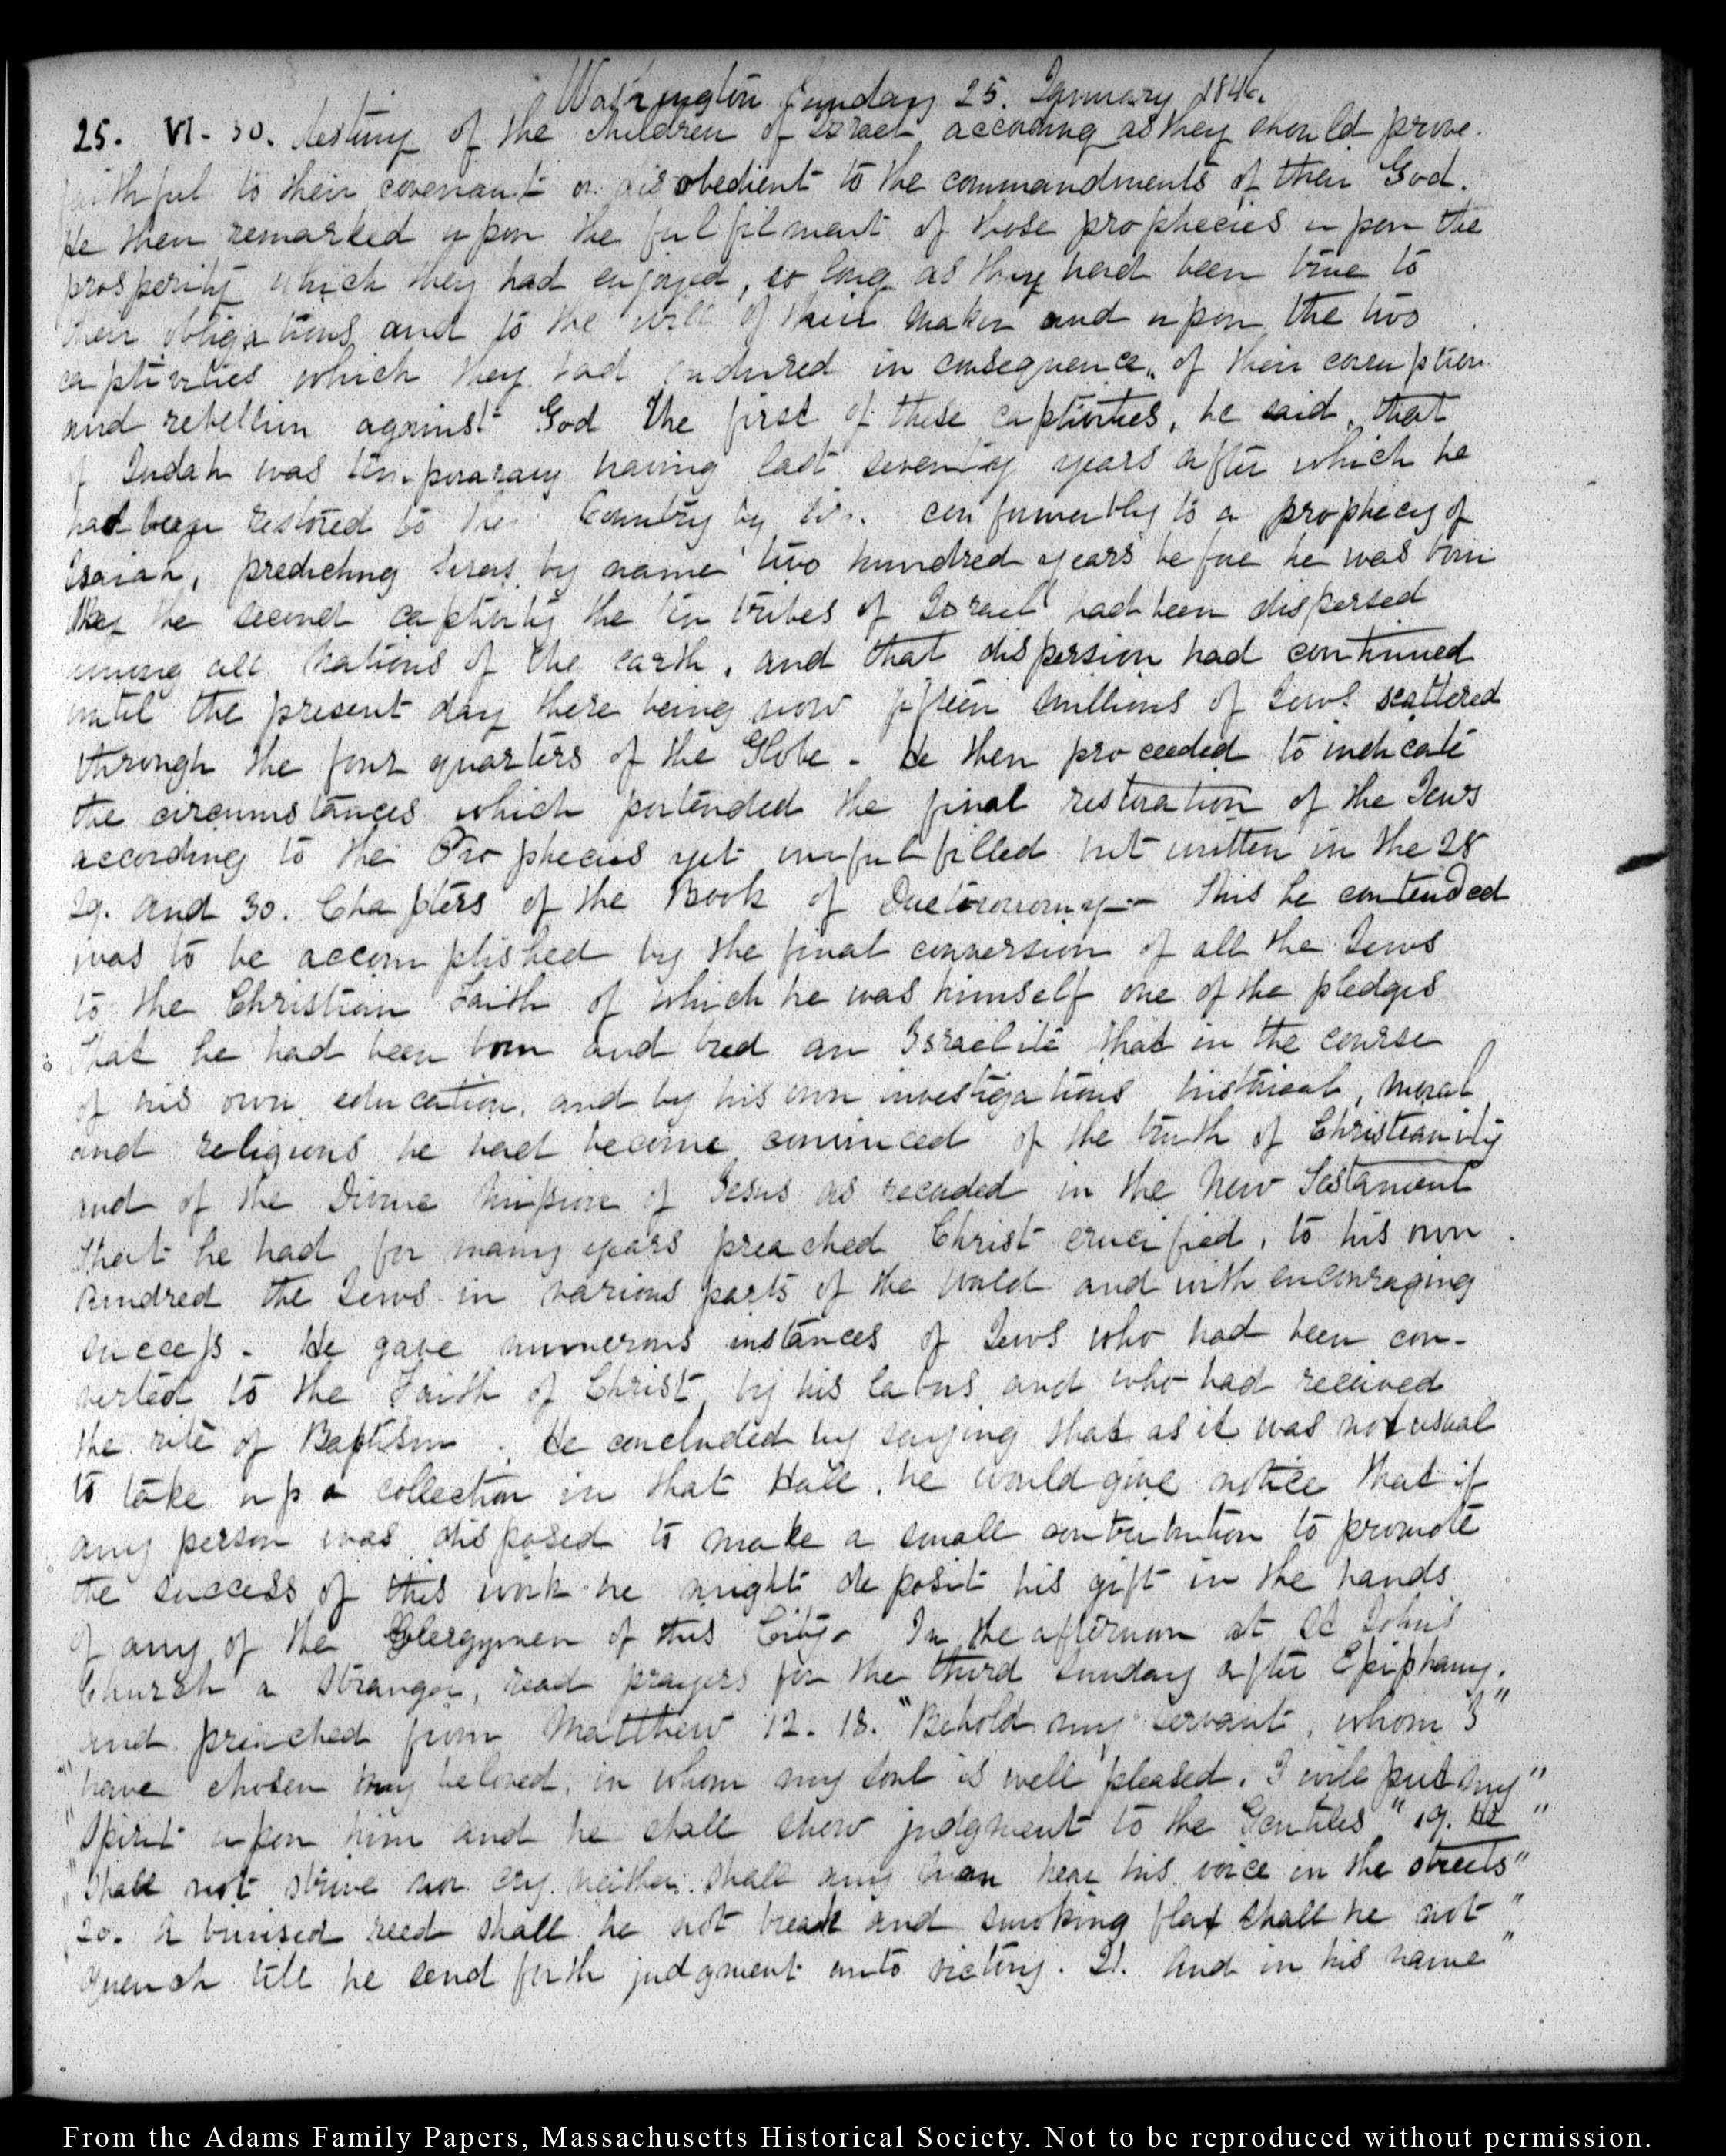 Washington Sunday 25. January 1846.
25. VI-30. destiny of the Children of Israel according as they should prove
faithful to their covenant or disobedient to the commandments of their God.
He then remarked upon the fulfilment of those prophecies upon the
prosperity which they had enjoyed, so long as they had been true to
their obligations and to the will of their Maker and upon the two
captivities which they had endured in consequence, of their corruption
and rebellion against God The first of these captivities, he said, that
of Judah was temporarary having last seventy years after which he
had been restored to the Country by conformably to a prophecy of
Isaiah, predicting by name two hundred years before he was born
the second captivity the ten tribes of Israel had been dispersed
among all Nations of the earth, and that dispersion had continued
until the present day there being now fifteen Millions of Jews scattered
through the four quarters of the Globe - He then proceeded to indicate
the circumstances which portended the final restoration of the Jews
according to the Prophecies yet unfulfilled but written in the 28
29. and 30. Chapters of the Book of - This he contended
was to be accomplished by the final conversion of all the Jews
to the Christian Faith of which he was himself one of the pledges
That he had been born and bred an Israelite that in the course
of his own education, and by his own investigations historical, moral
and religious he had become convinced of the truth of Christianity
and of the Divine Mission of Jesus as recorded in the New Testament
that he had for many years preached Christ crucified, to his own
kindred the Jews in various parts of the World and with encouraging
success - He gave numerous instances of Jews who had been con-
verted to the Faith of Christ by his labors and who had received
the rite of Baptism. He concluded by saying that as it was not usual
to take up a collection in that Hall, he would give notice that if
any person was disposed to make a small contribution to promote
the success of this work he might deposit his gift in the hands
of any of the Clergymen of this City - In the afternoon at St John's
Church a Stranger, read prayers for the third Sunday after Epiphany.
and preached from Matthew 12. 18. "Behold my servant, whom I"
"have chosen my beloved, in whom my soul is well pleased. I will put my"
"Spirit upon him and he shall show judgment to the Gentiles" 19. He"
"shall not strive nor cry neither shall any man hear his voice in the streets"
"20. A bruised reed shall he not break and smoking flax shall he not"
quench till he send forth judgment unto victory. 21. And in his name"
From the Adams Family Papers, Massachusetts Historical Society. Not to be reproduced without permission.